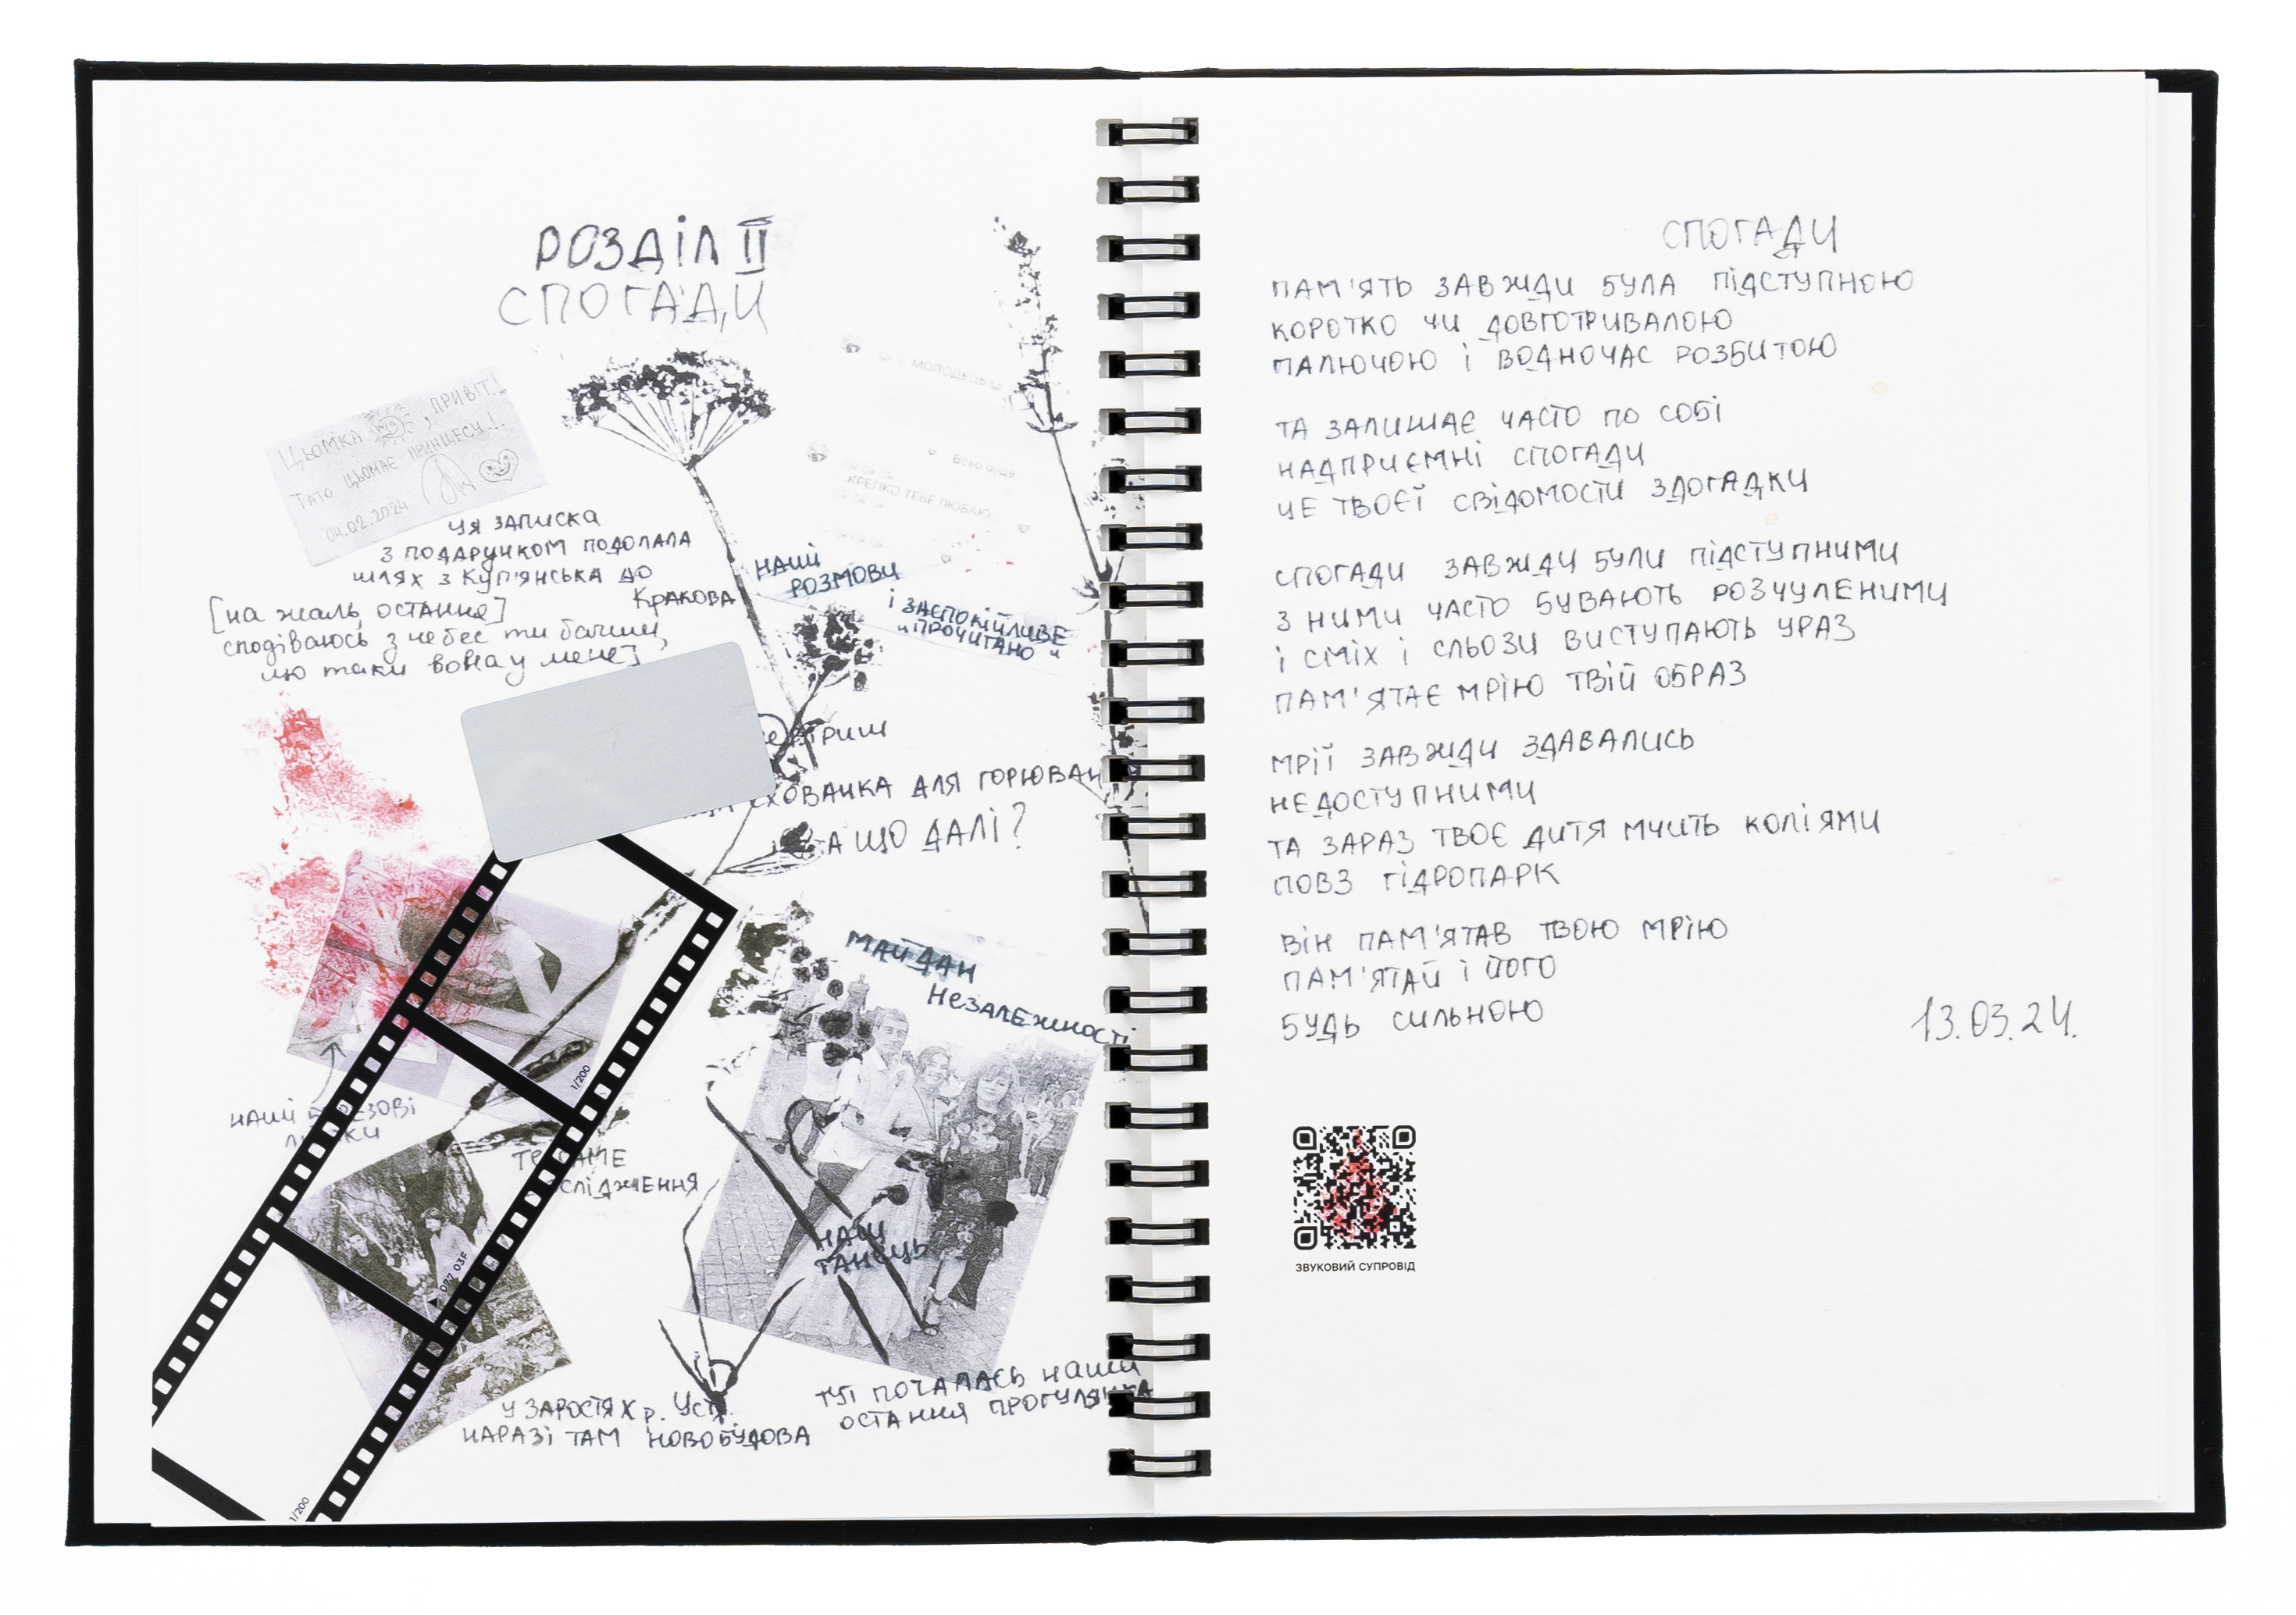 РОЗДІЛ II
СПОГАДИ
ЦЬОМКА , ПРИВІТ!
ТАТО ЦЬОМАЄ ПРИНЦЕСУ!
04.02.2024
ЦЯ ЗАПИСКА
З ПОДАРУНКОМ ПОДОЛАЛА
ШЛЯХ З КУП'ЯНСЬКА ДО
КРАКОВА
[на жаль, остання]
сподіваюсь з небес ти бачиш,
що таки вона у мене]
МОЛОДЕЦЬ
Всьо буде
КРЕПКО ТЕБЕ ЛЮБАЮ
НАШІ
РОЗМОВИ
І ЗАСПОКІЙЛИВЕ
"ПРОЧИТАНО"
ХОВАНКА ДЛЯ ГОРЮВАН
А ЩО ДАЛІ?
МАЙДАН
НЕЗАЛЕЖНОСТІ
НАШІ
1/200
D77 03F
НАШ
ТАНЕЦЬ
У ЗАРОСТЯХ р.
НАРАЗІ ТАМ НОВОБУДОВА
ТУТ ПОЧАЛАСЬ НАША
ОСТАННЯ ПРОГУЛЯНКА
1/200
СПОГАДИ
ПАМ'ЯТЬ ЗАВЖДИ БУЛА ПІДСТУПНОЮ
КОРОТКО ЧИ ДОВГОТРИВАЛОЮ
ПАЛЮЧОЮ І ВОДНОЧАС РОЗБИТОЮ
ТА ЗАЛИШАЄ ЧАСТО ПО СОБІ
НАДПРИЄМНІ СПОГАДИ
ЦЕ ТВОЄЇ СВІДОМОСТИ ЗДОГАДКИ
СПОГАДИ ЗАВЖДИ БУЛИ ПІДСТУПНИМИ
З НИМИ ЧАСТО БУВАЮТЬ РОЗЧУЛЕНИМИ
І СМІХ І СЛЬОЗИ ВИСТУПАЮТЬ УРАЗ
ПАМ'ЯТАЄ МРІЮ ТВІЙ ОБРАЗ
МРІЇ ЗАВЖДИ ЗДАВАЛИСЬ
НЕДОСТУПНИМИ
ТА ЗАРАЗ ТВОЄ ДИТЯ МЧИТЬ КОЛІЯМИ
ПОВЗ ГІДРОПАРК
ВІН ПАМ'ЯТАВ ТВОЮ МРІЮ
ПАМ'ЯТАЙ І ЙОГО
БУДЬ СИЛЬНОЮ
13.03.24.
ЗВУКОВИЙ СУПРОВІД